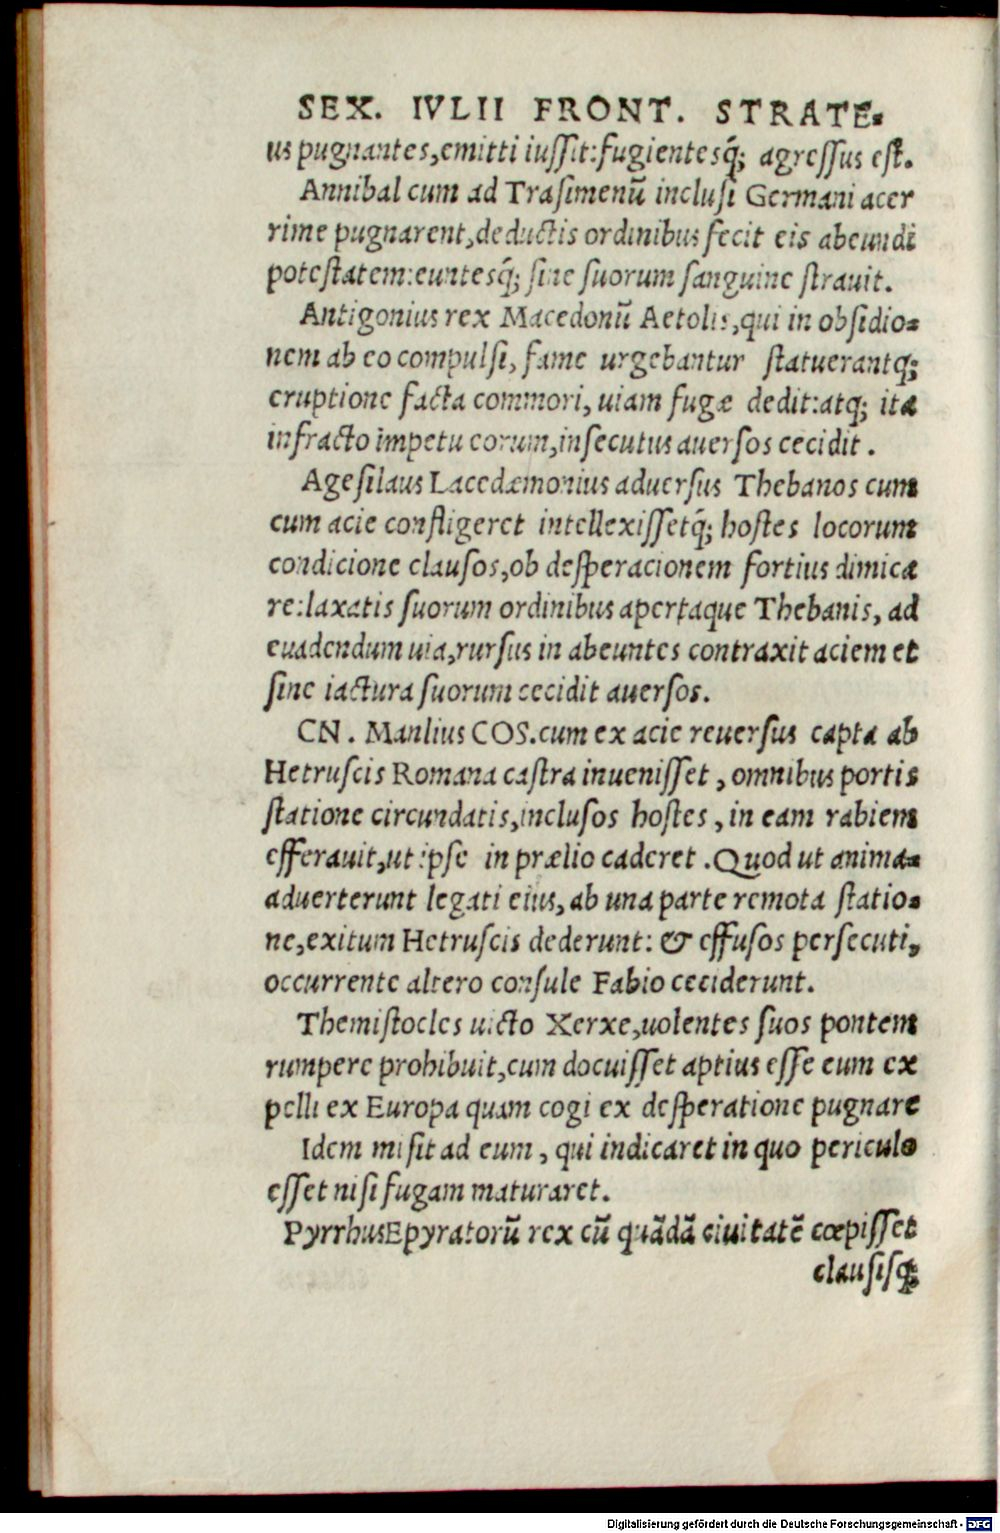 SEX. IVLII FRONT. STRATE⸗
us pugnantes,emitti iuſſit:fugientesq́; agreſſus eſt.
Annibal cum ad Traſimenū incluſi Germani acer
rime pugnarent,deductis ordinibus fecit eis abeundi
poteſtatem:euntesq́; ſine ſuorum ſanguine ſtrauit.
Antigonius rex Macedonū Aetolis,qui in obſidio⸗
nem ab eo compulſi, fame urgebantur ſtatuerantq;
eruptione facta commori, uiam fugæ dedit:atq; ita
infracto impetu eorum,inſecutus auerſos cecidit .
Ageſilaus Lacedæmonius aduerſus Thebanos cum
cum acie confligeret intellexiſſetq́; hoſtes locorum
condicione clauſos,ob deſperacionem fortius dimica
re:laxatis ſuorum ordinibus apertaque Thebanis, ad
euadendum uia,rurſus in abeuntes contraxit aciem et
ſine iactura ſuorum cecidit auerſos.
CN . Manlius COS.cum ex acie reuerſus capta ab
Hetruſcis Romana caſtra inueniſſet , omnibus portis
ſtatione circundatis,incluſos hoſtes , in eam rabiem
efferauit,ut ipſe in prælio caderet .Quod ut anima⸗
aduerterunt legati eius, ab una parte remota ſtatio⸗
ne,exitum Hetruſcis dederunt: & effuſos perſecuti,
occurrente altero conſule Fabio ceciderunt.
Themiſtocles uicto Xerxe,uolentes ſuos pontem
rumpere prohibuit,cum docuiſſet aptius eſſe eum ex
pelli ex Europa quam cogi ex deſperatione pugnare
Idem miſit ad eum , qui indicaret in quo periculo
eſſet niſi fugam maturaret.
PyrrhusEpyratorū rex cū quādā ciuitatē cœpiſſet
clauſisq;
Digitalisierung gefördert durch die Deutsche Forschungsgemeinschaft - DFG